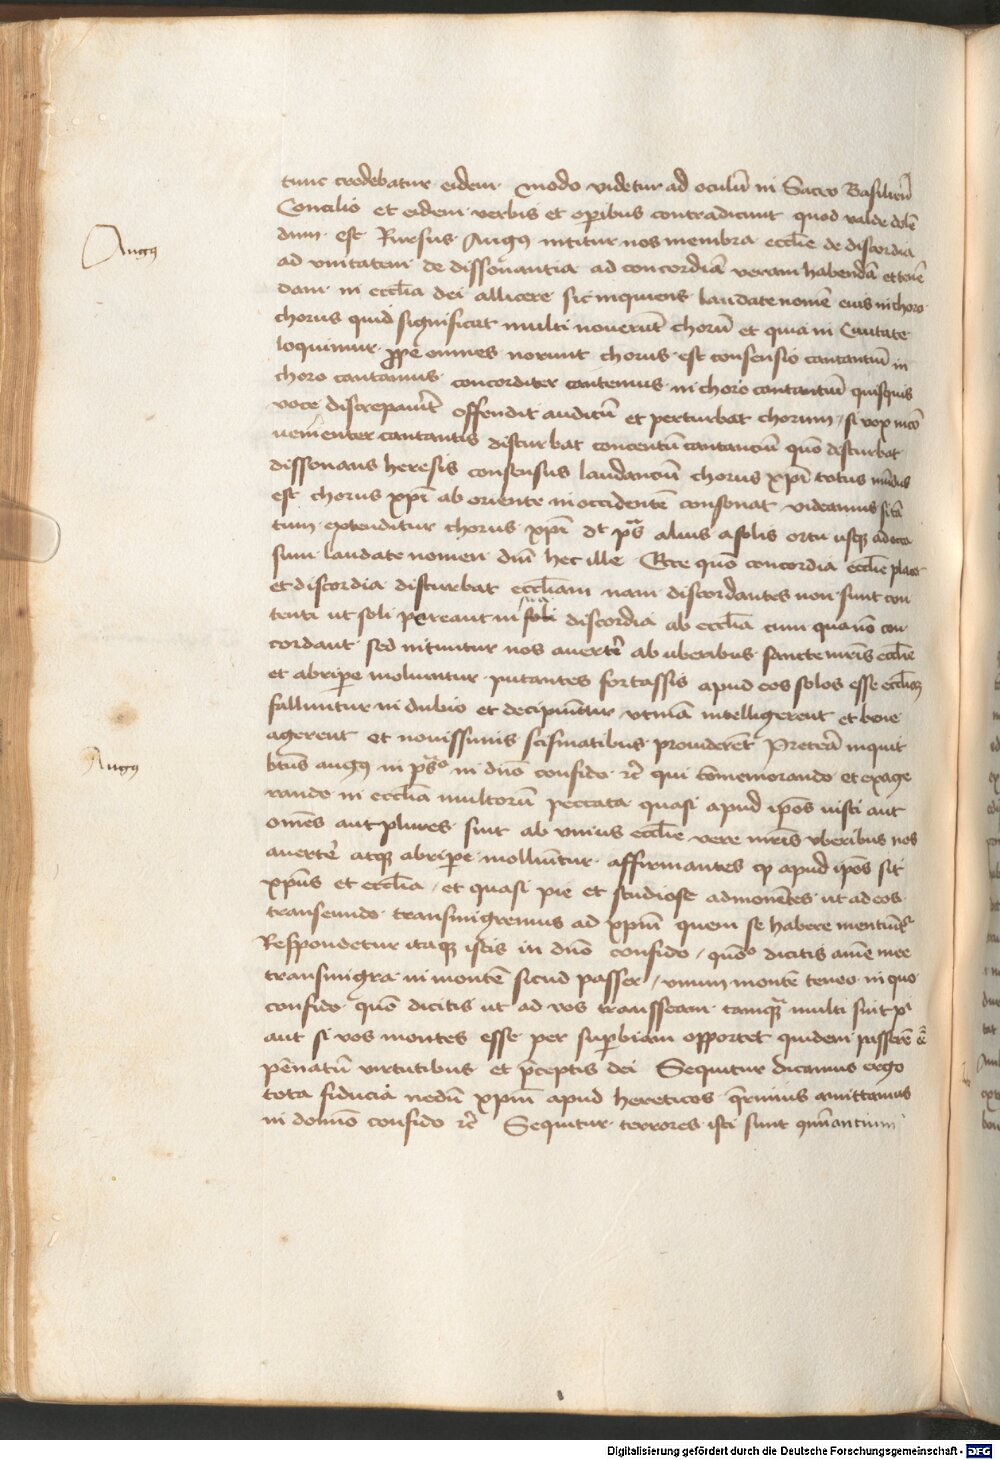 tunc credebatur eidem modo videtur ad oculū in Sacro Basiliēn̄
Concilio et eidem verbis et operibus contradicunt quod valde dolē
dum est Rursus Augus nititur nos membra ecclīe de discordia
Augus
ad vnitatem de dissonantia ad concordiā veram habendā et tenē
dam in ecclīa dei allicere sic inquiens laudate nomē eius in choro
chorus quid significat multi nouerūt chorū et quia in Ciuitate
loquimur prope omnes norunt chorus est consensio cantantiū in
choro cantamus concorditer cantemus in choro cantantiū quisquis
voce discrepauerit offendit auditū et perturbat chorum / si vox incō
uenienter cantantis disturbat concentū cantanciū quō disturbat
dissonans heresis consensus laudanciū chorus xpī totus mūdus
est chorus xpī ab oriente in occidentē consonat videamus si tā
tum extenditur chorus xpī dt ps alius a solis ortu usq ad occa
sum laudate nomen dnī hec ille Ecce quō concordia ecclīe placet
et discordia disturbat ecclīam nam discordantes non sunt con
tenti ut soli pereant in sua discordia ab ecclīa cum qua nō con
cordant sed nituntur nos auerte ab uberibus sancte mrīs ecclīe
et abripe moliuntur putantes fortassis apud eos solos esse ecclīaȝ
falluntur in dubio et decipiūtur vtinā intelligerent et bene
agerent et nouissimis scismatibus prouiderēt Pretereā inquit
btūs augus in ps° in dnō confido rc̄ qui cōmemorando et exage
Augus
rando in ecclīa multorū peccata quasi apud ipōs iusti aut
omēs aut plures sint ab vnius ecclīe vere mrīs vberibus nos
auerte atq abripe moliūtur affirmantes ꝙ apud ipōs sit
xpūs et ecclīa / et quasi pie et studiose admonētes ut ad eos
transeundo transmigremus ad xpīm quem se habere mentiūtur
Respondetur itaq istis in dnō confido / quō° dicitis aīe mee
transmigra in montē sicud passer / vnum montē teneo in quo
confido quō dicitis ut ad vos transseam tamq multi sint xpī
aut si vos montes esse per supbiam opportet quidem passerē eē
pēnatū virtutibus et pceptis dei Sequitur dicamus ergo
tota fiducia nedū xpīm apud hereticos qrimus amittamus
in domīo confido rc̄ Sequitur terrores isti sunt
Digitalisierung gefördert durch die Deutsche Forschungsgemeinschaft - DFG